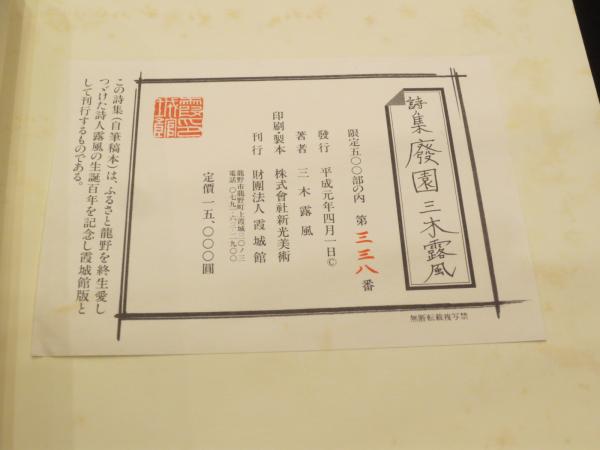 詩集 廢園 三木露風
限定五〇〇部の内 第三三八番
發行 平成元年四月一日©
著者 三木露風
印刷・製本 株式會社新光美術
刊行 財團法人霞城館
龍野市龍野町上霞城三〇ノ三
電話 〇七九一・六三・二九〇〇
定價 一五、〇〇〇圓
霞城館
この詩集(自筆稿本)は、ふるさと龍野を終生愛し
つづけた詩人露風の生誕百年を記念し霞城館版と
して刊行するものである。
無断転載複写禁